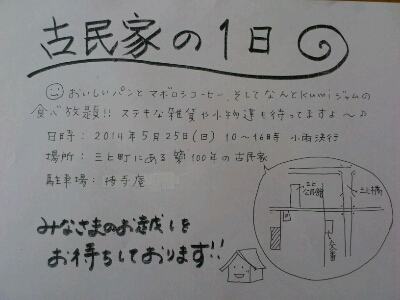 古民家の1日
おいしいパンとマボロシコーヒー、そしてなんとkumiジャムの
食べ放題!! ステキな雑貨や小物達も待ってますよ〜♪
日時：2014年5月25日(日) 10〜16時 小雨決行
場所：三ヒ町にある築100年の古民家
駐車場：
みなさまのお越しを
お待ちしております!!
公民館